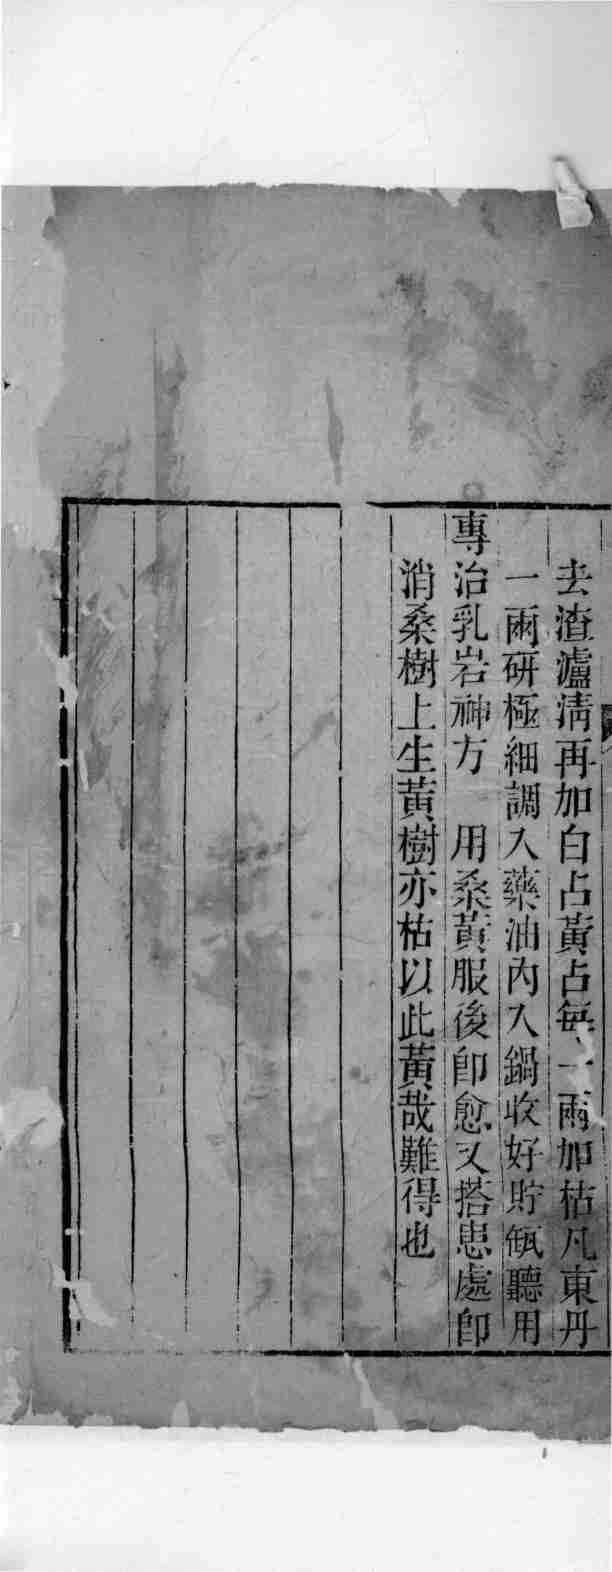 去渣瀘淸再加白占黃占每一兩加枯凡東丹
一兩研極細調入藥油內入鍋收好貯瓶聽用
專治乳岩神方　用桑黃服後卽愈又搭患處卽
消桑樹上生黃樹亦枯以此黃哉難得也